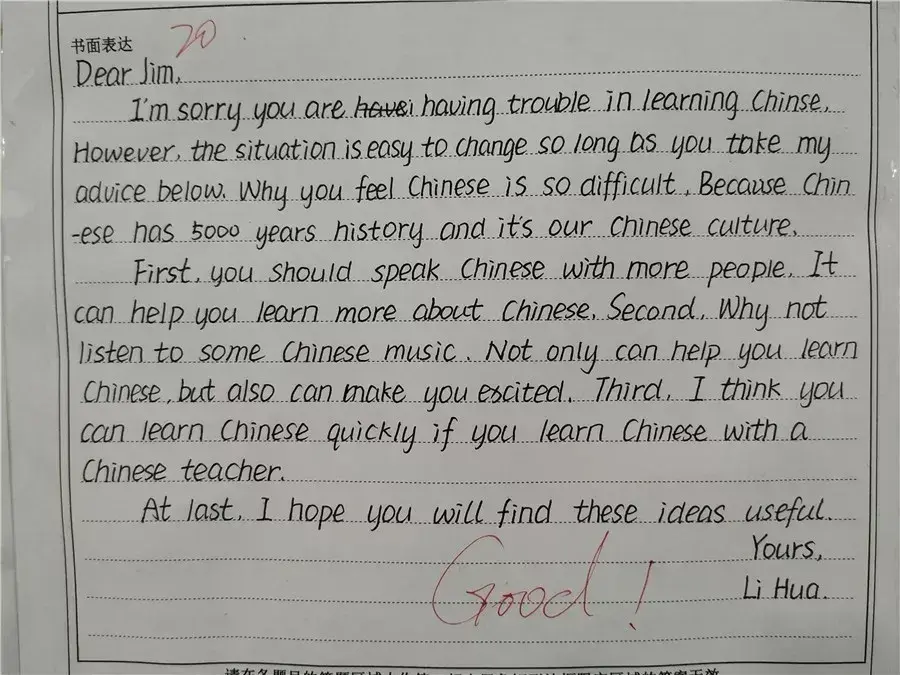 书面表达
20
Dear Jim,
I'm sorry you are having trouble in learning Chinse.
However, the situation is easy to change so long as you take my
advice below. Why you feel Chinese is so difficult. Because Chin
-ese has 5000 years history and it's our Chinese culture.
First, you should speak Chinese with more people. It
can help you learn more about Chinese. Second, Why not
listen to some Chinese music. Not only can help you learn
Chinese, but also can make you excited. Third, I think you
can learn Chinese quickly if you learn Chinese with a
Chinese teacher.
At last, I hope you will find these ideas useful.
Yours,
Li Hua.
Good!